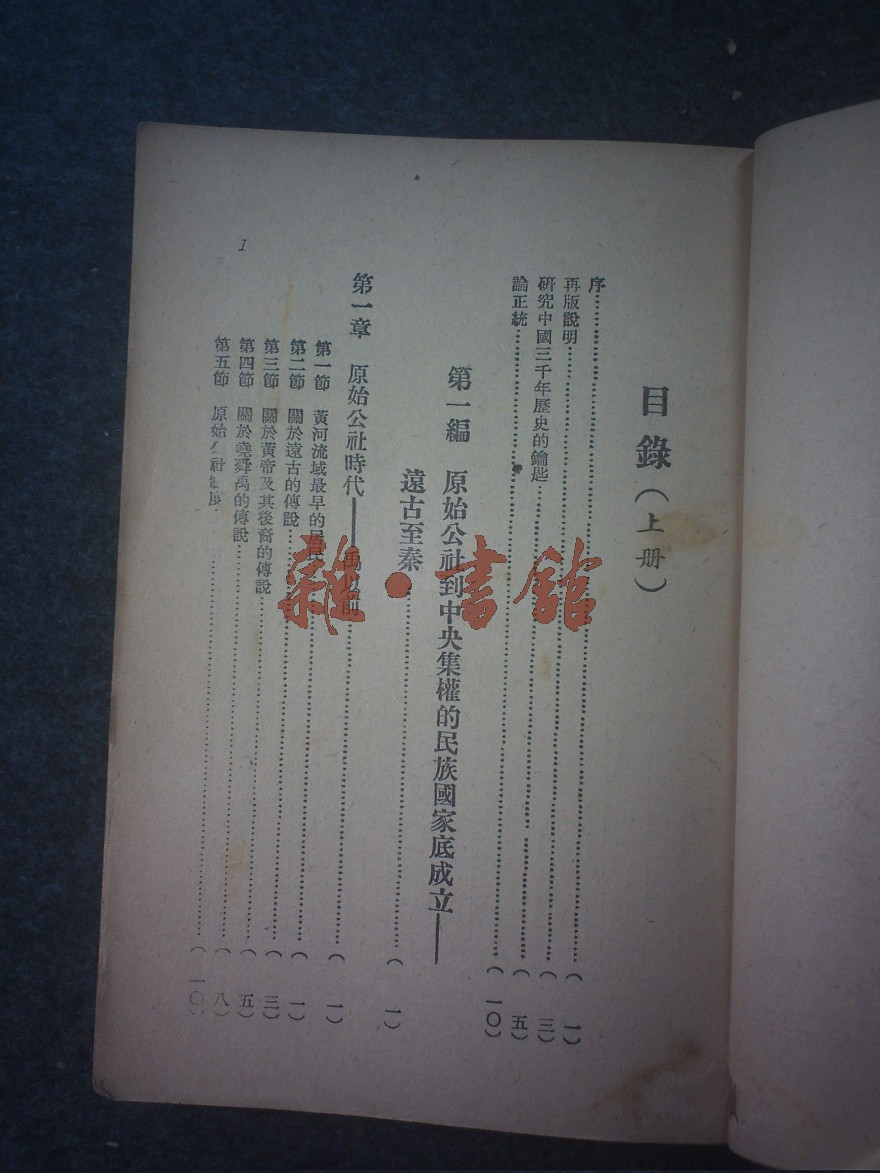 目錄（上册）
序……（一）
再版說明……（三）
研究中國三千年歷史的鑰匙……（五）
論正統……（一〇）
第一編　原始公社到中央集權的民族國家底成立——
遠古至秦……（一）
第一章　原始公社時代——禹以前……（一）
第一節　黃河流域最早的居民……（一）
第二節　關於遠古的傳說……（三）
第三節　關於黃帝及其後裔的傳說……（五）
第四節　關於堯舜禹的傳說……（八）
第五節　原始公社制度……（一〇）
1
雜·書館